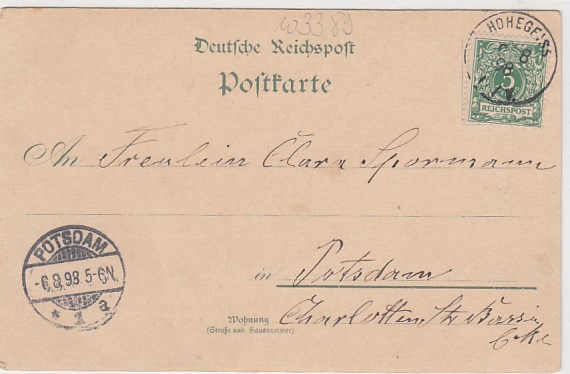 w3389
Deutsche Reichspost
Postkarte
HOHEGEISS
8
98
5
REICHSPOST
An Freulein Clara Spormann
POTSDAM
-6.8.98.5-6N.
* 1 a
in Potsdam
Wohnung
(Straße und Hausnummer)
Charlottenstr
Ecke